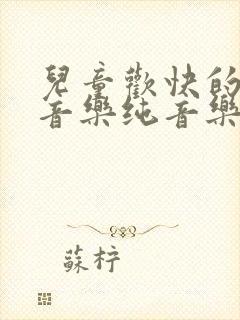 兒童歡快的
音樂纯音樂
蘇柠